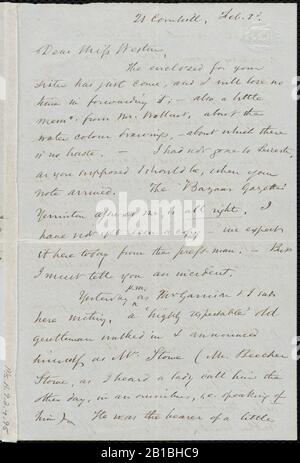 21 Cornhill, Feb. 2d.
Dear Miss Weston,
The enclosed for your
sister has just come, and I will lose no
time in forwarding it; - also a little
memo. from Mr. Wallcut, about the
water colour drawings, - about which there
is no haste. - I had not gone to Leicester,
as you supposed I should be, when your
note arrived. The "Bazaar Gazette"
Yerrinton assures me, is all right. I
have not yet seen a copy - we expect
it here today from the press-man. - But
I must tell you an incident.
Yesterday p.m. as Mr Garrison & I sat
here writing, a highly respectable old
gentleman walked in & announced
himself as Mr. Stowe (Mr. Beecher
Stowe, as I heard a lady call him the
other day, in an omnibus, speaking of
him). He was the bearer of a little
Ms. A.9.2.4.95
alamy
Image ID: 2B1BHC9
www.alamy.com